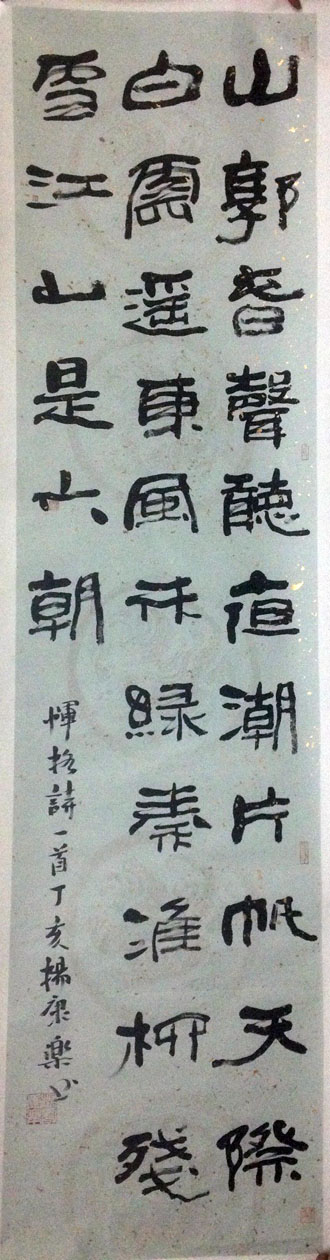 山郭春聲聽夜潮片帆天際
白雲遥東風未緑秦淮柳殘
雪江山是六朝
惲格詩一首丁亥楊康樂书